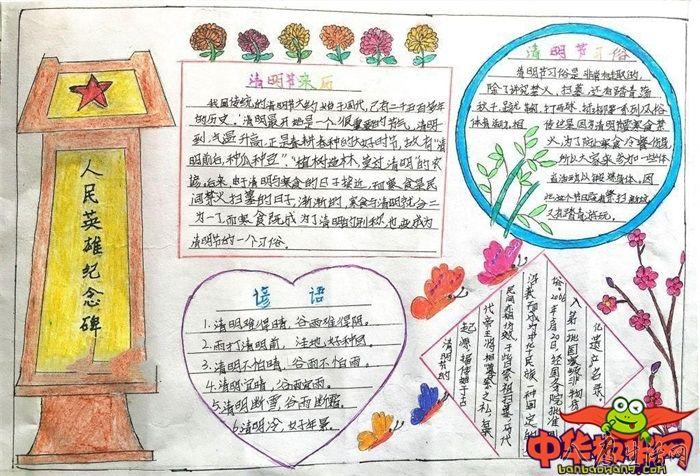 人民英雄纪念碑
清明节来历
我国传统的清明节大约始于周代，已有二千五百多年
的历史，清明最开始是一个很重要的节气，清明一
到，气温升高，正是春耕春种的大好时节，故有"清
明前后，种瓜种豆"。"植树造林，莫过清明"的农
谚。后来，由于清明与寒食的日子接近，而寒食是民
间禁火扫墓的日子，渐渐的，寒食与清明就合二
为一了，而寒食既成为了清明的别称，也变成为
清明节的一个习俗。
清明节习俗
清明节习俗是非常有趣的，
除了讲究禁火、扫墓，还有踏青荡
秋千、蹴鞠、打马球、插柳等一系列风俗
体育活动，相
传这是因为清明节要寒食禁
火，为了防止寒食冷餐伤身，
所以大家来参加一些体
谚语
1.清明难得晴，谷雨难得阴。
2.雨打清明前，洼地好种田。
3.清明不怕晴，谷雨不怕雨。
4.清明宜晴，谷雨宜雨。
5.清明断雪，谷雨断霜。
6.清明冷，好年景。
清明节的
起源，据传始于古
代帝王将相"墓祭"之礼，后来
民间亦相仿效，于此日祭祖扫墓，历代
沿袭而成为中华民族一种固定的
俗。2006年5月20日，经国务院批准列
入第一批国家级非物质
化遗产名录。
中华板报网
banbaowang.com